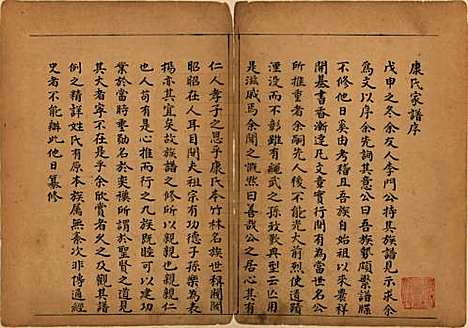 康氏家譜序
戊申之冬余友人李門公持其族譜見示求余
為文以序余先詞其意公曰吾族繁頗崇譜牒
不修他日奚由考稽且吾族自始祖以來累祥
開基書香漸達凡文章實行閒有為當世名公
所推重者余嗣先人後不能光大前烈使祖功
湮沒而不彰雖有咸尠典型云亡用
是滋戚焉余聞之慨然曰善哉公之居心其有
仁人孝子之思乎康氏本竹林名族世稱閥閱
昭昭在人耳目間夫祖宗有功德子孫樂為表
揚亦其宜矣故族譜之修所以親親也親親仁
也人苟有是心推而行之九族既睦可以建功
業於當時垂勳名於奕禩所謂於聖賢之道見
其大者寧不在是乎余欣賞者久之及觀其譜
例之精詳姓氏有原本族屬無紊次非倚通經
史者不能辦此他日纂修